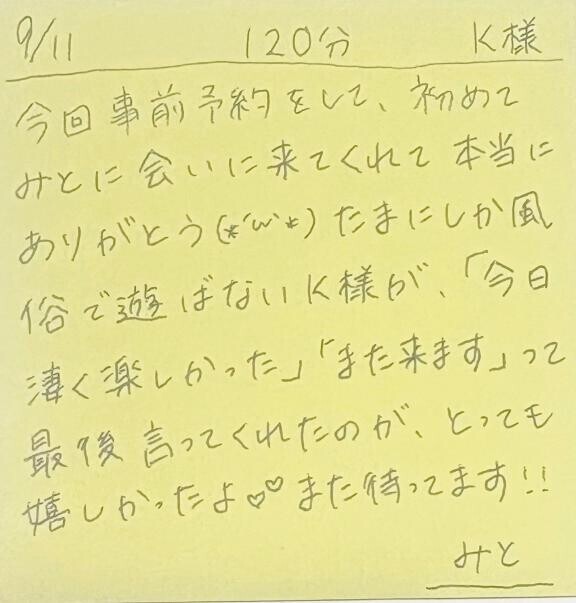 9/11 120分 K様
今回事前予約をして、初めて
みとに会いに来てくれて本当に
ありがとう(*´ω`*)たまにしか風
俗で遊ばないK様が、「今日
凄く楽しかった」「また来ます」って
最後言ってくれたのが、とっても
嬉しかったよ♡♡また待ってます!!
みと